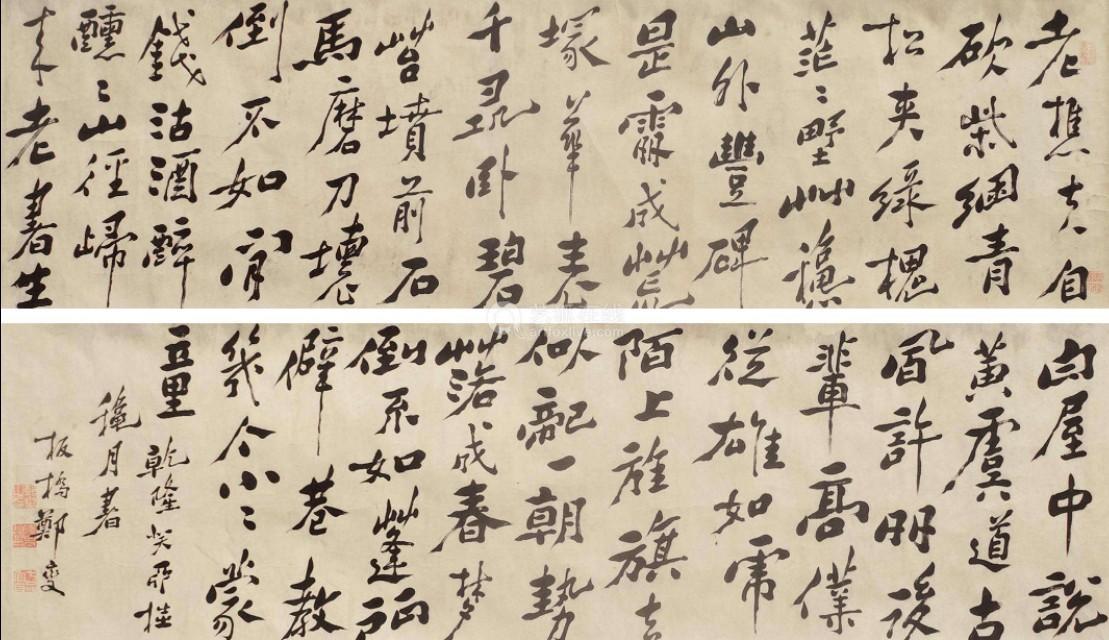 老樵夫自
砍柴綑青
松夾緑槐
茫〻野艸穐
山外豐碑
是處成荒
塚華表
千尋卧碧
苔墳前石
馬磨刀壞
倒不如閒
錢沽酒醉
醺〻山徑歸
来老書生
白屋中説
黄虞道古
風許多後
輩高僕
從雄如虎
陌上旌旗去
似龍一朝勢
落成春梦
倒不如蓬門
僻巷教
幾个小〻蒙
童 乾隆癸酉桂
穐月書
板橋鄭燮
artfoxlive.com